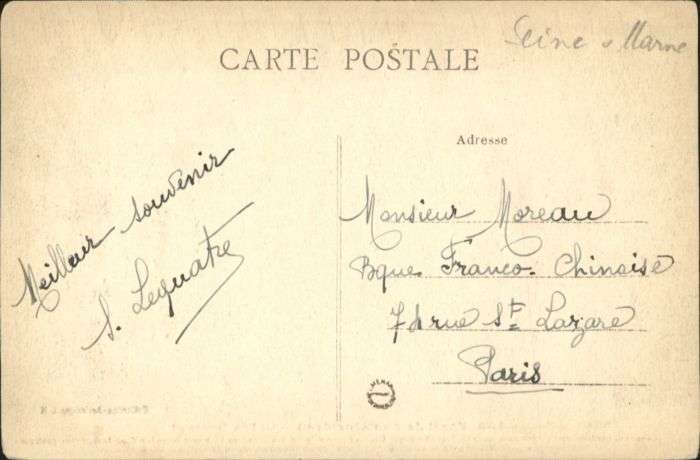 Seine & Marne
CARTE POSTALE
Meilleur souvenir
S. Lequatre
Adresse
Monsieur Moreau
Bque Franco-Chinoise
74 rue St Lazare
Paris